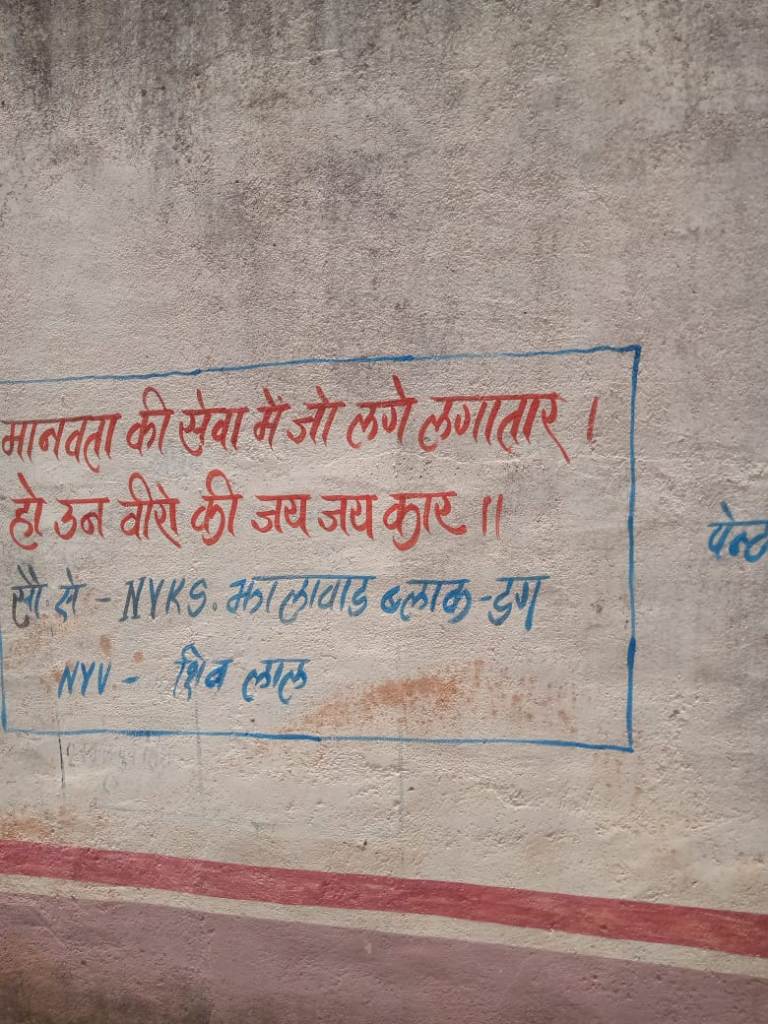 मानवता की सेवा में जो लगे लगातार ।
हो उन वीरो की जय जय कार ॥
सौ. से - NYKS. झालावाड ब्लाक - डग
NYV - शिव लाल
पेन्ट